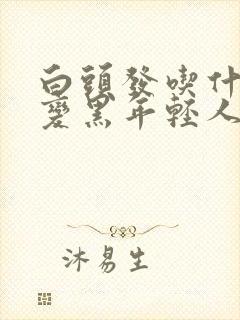 白頭發喫什
變黑年輕人
沐易生